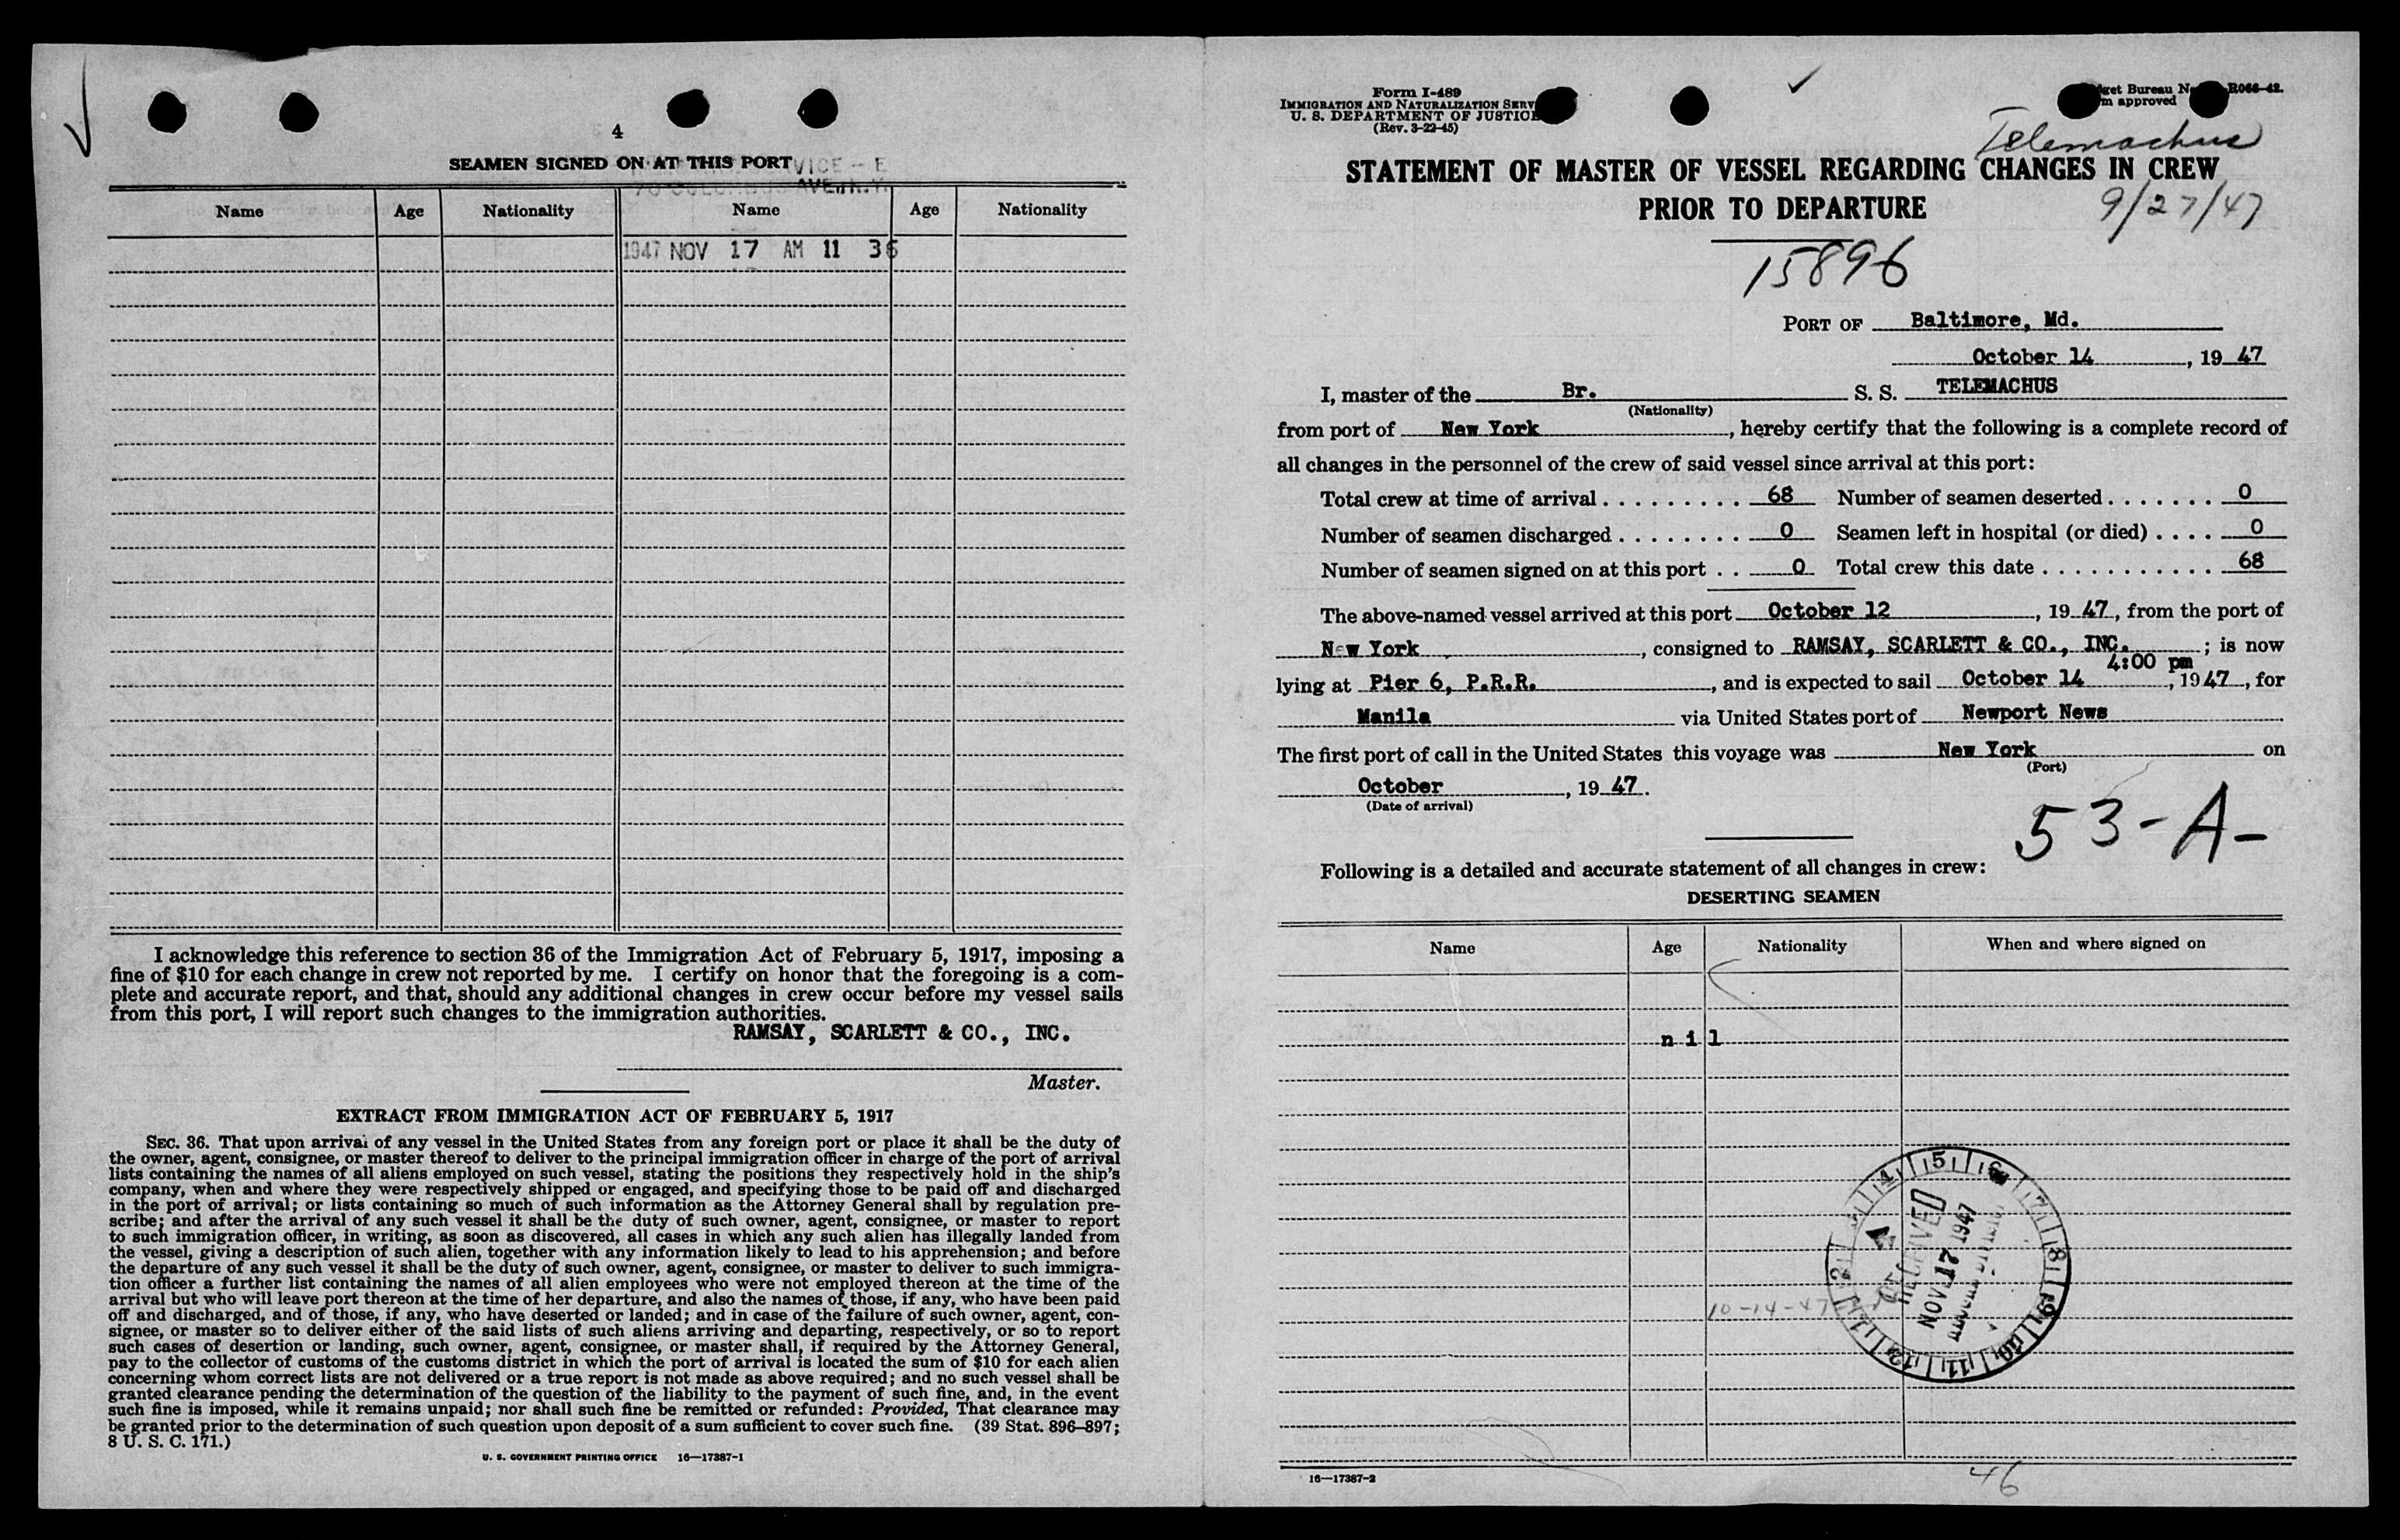 4
SEAMEN SIGNED ON AT THIS PORT
VICE - E
AVE., N.Y.
Name Age Nationality Name Age Nationality
1947 NOV 17 AM 11 36
I acknowledge this reference to section 36 of the Immigration Act of February 5, 1917, imposing a
fine of $10 for each change in crew not reported by me. I certify on honor that the foregoing is a com-
plete and accurate report, and that, should any additional changes in crew occur before my vessel sails
from this port, I will report such changes to the immigration authorities.
RAMSAY, SCARLETT & CO., INC.
Master.
EXTRACT FROM IMMIGRATION ACT OF FEBRUARY 5, 1917
SEC. 36. That upon arrival of any vessel in the United States from any foreign port or place it shall be the duty of
the owner, agent, consignee, or master thereof to deliver to the principal immigration officer in charge of the port of arrival
lists containing the names of all aliens employed on such vessel, stating the positions they respectively hold in the ship's
company, when and where they were respectively shipped or engaged, and specifying those to be paid off and discharged
in the port of arrival; or lists containing so much of such information as the Attorney General shall by regulation pre-
scribe; and after the arrival of any such vessel it shall be the duty of such owner, agent, consignee, or master to report
to such immigration officer, in writing, as soon as discovered, all cases in which any such alien has illegally landed from
the vessel, giving a description of such alien, together with any information likely to lead to his apprehension; and before
the departure of any such vessel it shall be the duty of such owner, agent, consignee, or master to deliver to such immigra-
tion officer a further list containing the names of all alien employees who were not employed thereon at the time of the
arrival but who will leave port thereon at the time of her departure, and also the names of those, if any, who have been paid
off and discharged, and of those, if any, who have deserted or landed; and in case of the failure of such owner, agent, con-
signee, or master so to deliver either of the said lists of such aliens arriving and departing, respectively, or so to report
such cases of desertion or landing, such owner, agent, consignee, or master shall, if required by the Attorney General,
pay to the collector of customs of the customs district in which the port of arrival is located the sum of $10 for each alien
concerning whom correct lists are not delivered or a true report is not made as above required; and no such vessel shall be
granted clearance pending the determination of the question of the liability to the payment of such fine, and, in the event
such fine is imposed, while it remains unpaid; nor shall such fine be remitted or refunded: Provided, That clearance may
be granted prior to the determination of such question upon deposit of a sum sufficient to cover such fine. (39 Stat. 896–897;
8 U. S. C. 171.)
U. S. GOVERNMENT PRINTING OFFICE 16—17387-1
Form I-489
IMMIGRATION AND NATURALIZATION SERV
U. S. DEPARTMENT OF JUSTICE
(Rev. 3-22-45)
get Bureau N R066-42.
m approved
Telemachus
STATEMENT OF MASTER OF VESSEL REGARDING CHANGES IN CREW
PRIOR TO DEPARTURE
9/27/47
15896
PORT OF Baltimore, Md.
October 14, 19 47
I, master of the Br. S. S. TELEMACHUS
(Nationality)
from port of New York, hereby certify that the following is a complete record of
all changes in the personnel of the crew of said vessel since arrival at this port:
Total crew at time of arrival . . . . . . . . . 68 Number of seamen deserted . . . . . . . 0
Number of seamen discharged . . . . . . . . 0 Seamen left in hospital (or died) . . . . 0
Number of seamen signed on at this port . . 0 Total crew this date . . . . . . . . . . . 68
The above-named vessel arrived at this port October 12, 19 47, from the port of
New York, consigned to RAMSAY, SCARLETT & CO., INC.; is now
4:00 pm
lying at Pier 6, P.R.R., and is expected to sail October 14, 1947, for
Manila via United States port of Newport News
The first port of call in the United States this voyage was New York on
(Port)
October, 19 47.
(Date of arrival)
53-A-
Following is a detailed and accurate statement of all changes in crew:
DESERTING SEAMEN
Name Age Nationality When and where signed on
n i l
RECEIVED
NOV 17 1947
10-14-47
16—17387-2
46